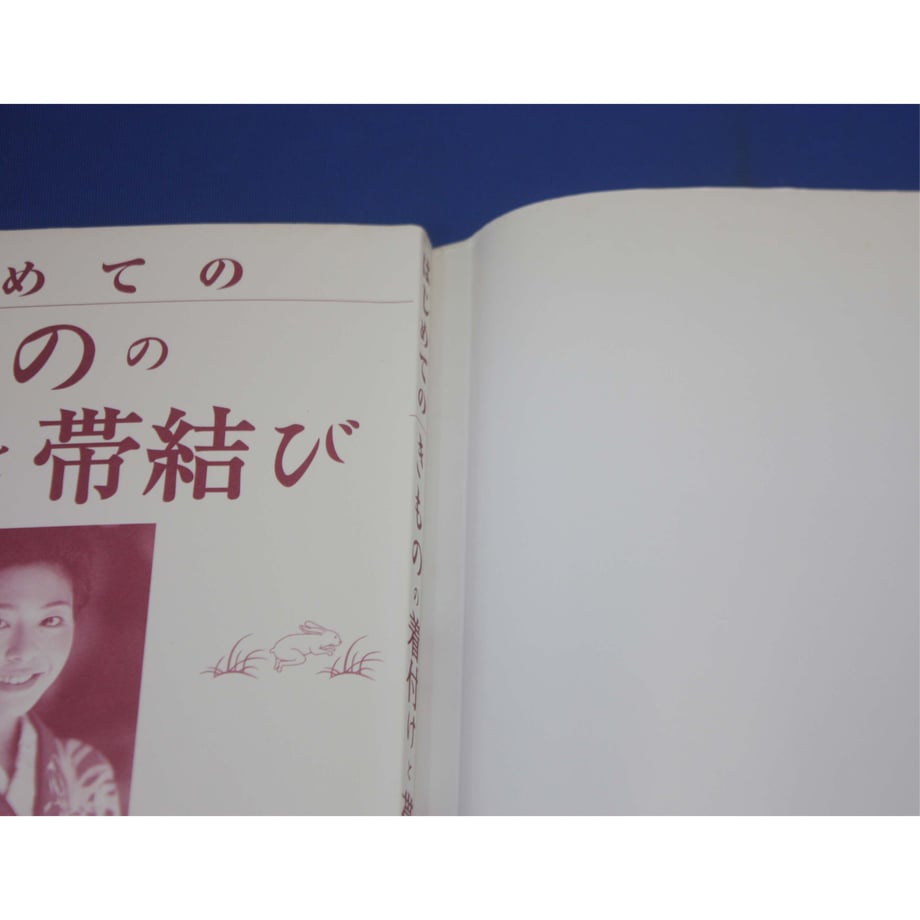 めての
のの
と帯結び
はじめての/きものの着付けと帯